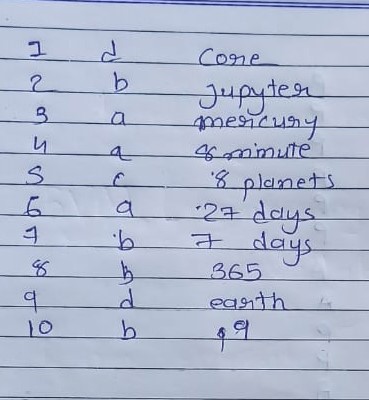 1 d Core
2 b Jupyter
3 a mercury
4 a 8 minute
5 c 8 planets
6 a 27 days
7 b 7 days
8 b 365
9 d earth
10 b 9